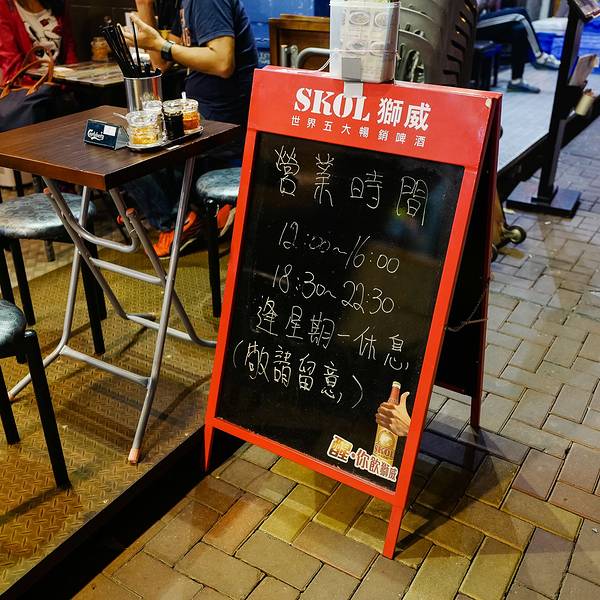 SKOL 獅威
世界五大暢銷啤酒
營業時間
12:00~16:00
18:30~22:30
逢星期一休息
(敬請留意)
SKOL
醒·你飲獅威
Carlsberg